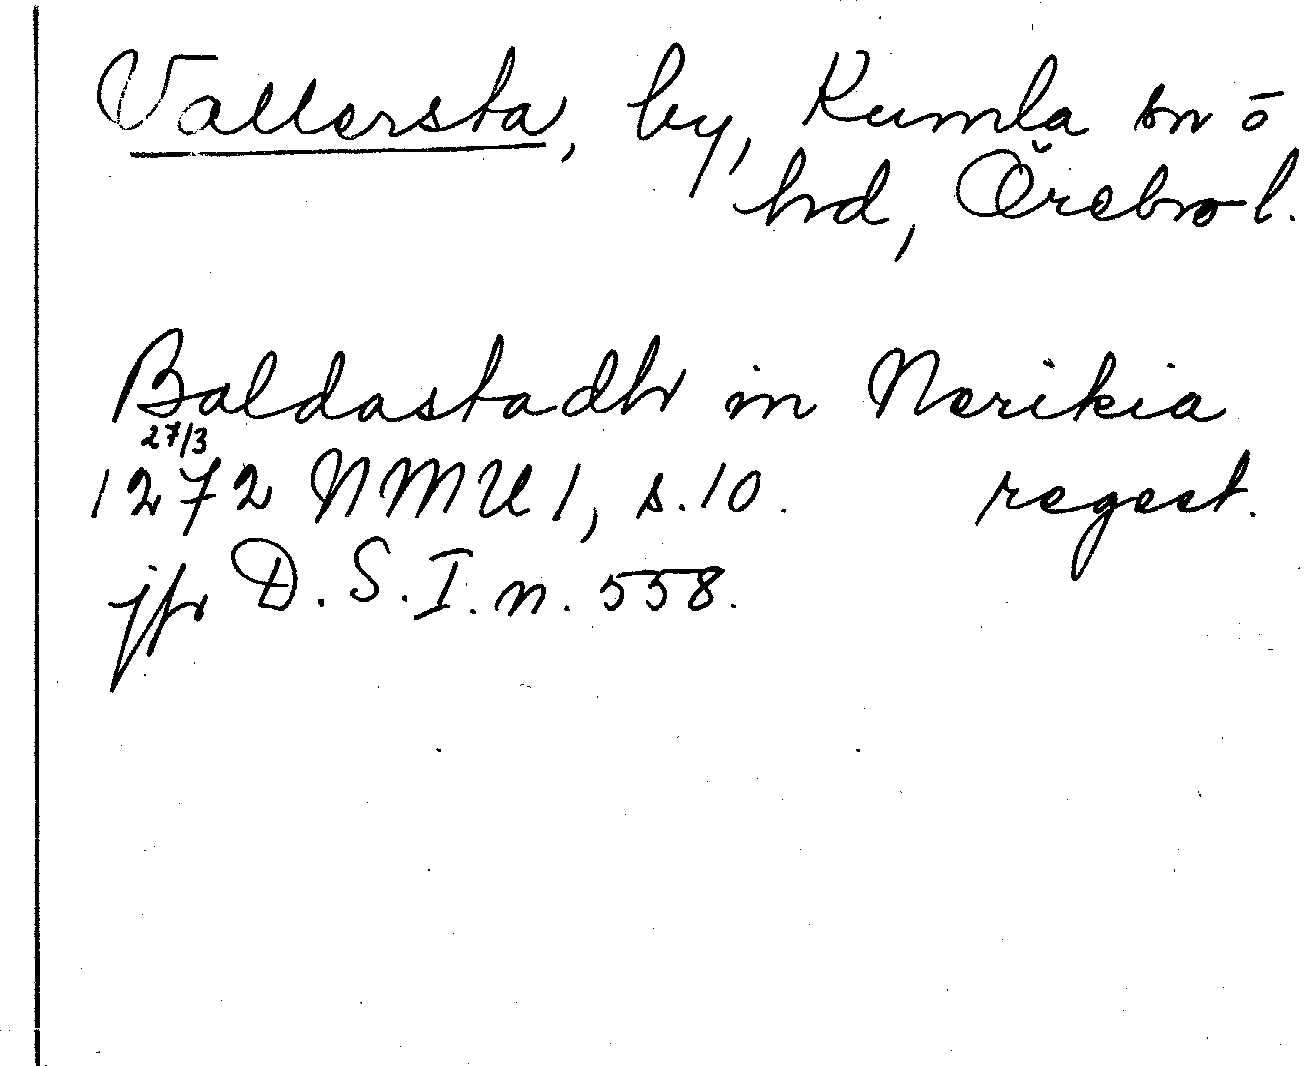 Vallersta, by, Kumla sn o
hd, Örebro l.
Baldastadhr in Nerikia
27/3
1272 NMU 1, s. 10. regest.
jfr D. S. I. n. 558.